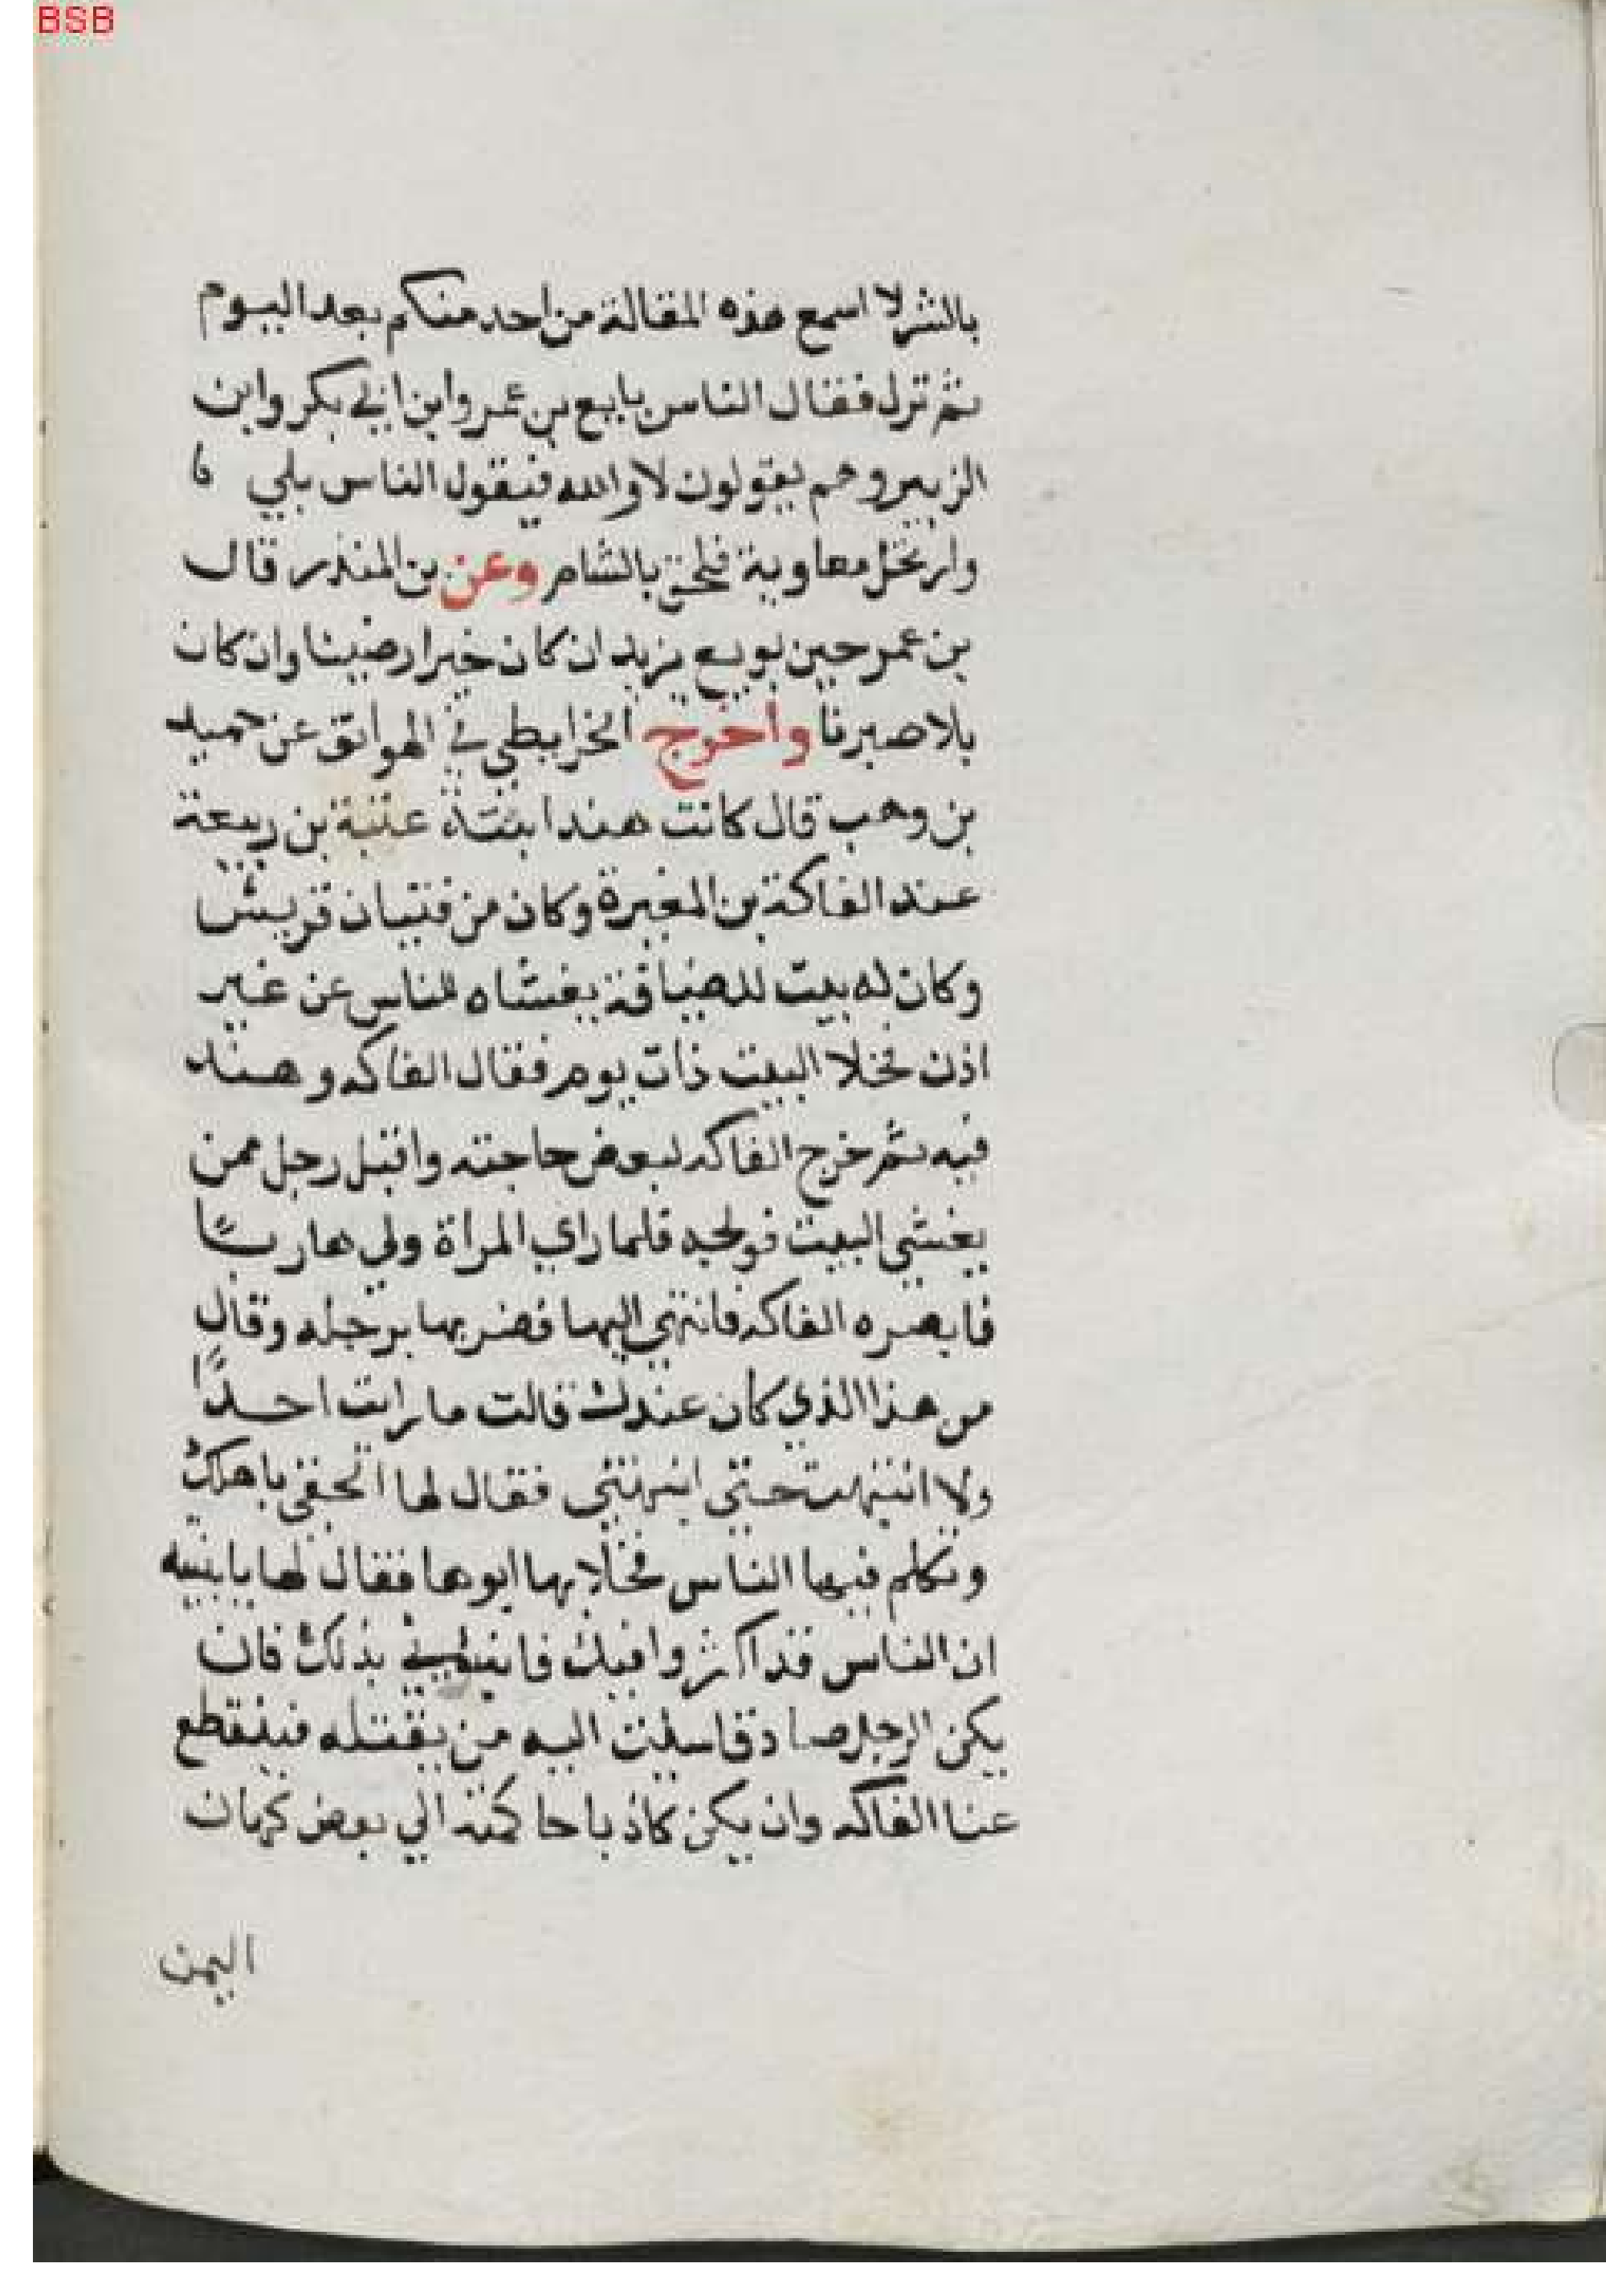 BSB
بالشر لا اسمع هذه المقالة من احد منكم بعد اليوم
ثم نزل فقال الناس بايع بن عمر وابن ابي بكر وابن
الزبير وهم يقولون لا والله فيقول الناس بلي
وارتحل معاوية فلحق بالشام وعن بن المنذر قال
بن عمر حين بويع يزيد ان كان خيرا رضينا وان كان
بلا صبرنا وأخرج الخرايطي في الهواتف عن حميد
بن وهب قال كانت هند ابنة عتبة بن ربيعة
عند الفاكة بن المغيرة وكان من فتيان قريش
وكان له بيت للضيافة يغشاه الناس عن غير
اذن فخلا البيت ذات يوم فقال الفاكه وهند
فيه ثم خرج الفاكه لبعض حاجته واقبل رجل ممن
يغشي البيت فولجه فلما راي المراة ولي هاربًا
فابصره الفاكه فانتهي اليها فضربها برجله وقال
من هذا الذي كان عندك قالت ما رايت احدًا
ولا انتبهت حتي انبهتني فقال لها الحقي باهلك
وتكلم فيها الناس فخلا بها ابوها فقال لها يا بنيه
ان الناس قد اكثروا فيك فانبئيني بذلك فان
يكن الرجل صادقا سلت اليه من يقتله فينقطع
عنا الفاكه وان يكن كاذبا حاكمته الي بعض كهان
اليمن